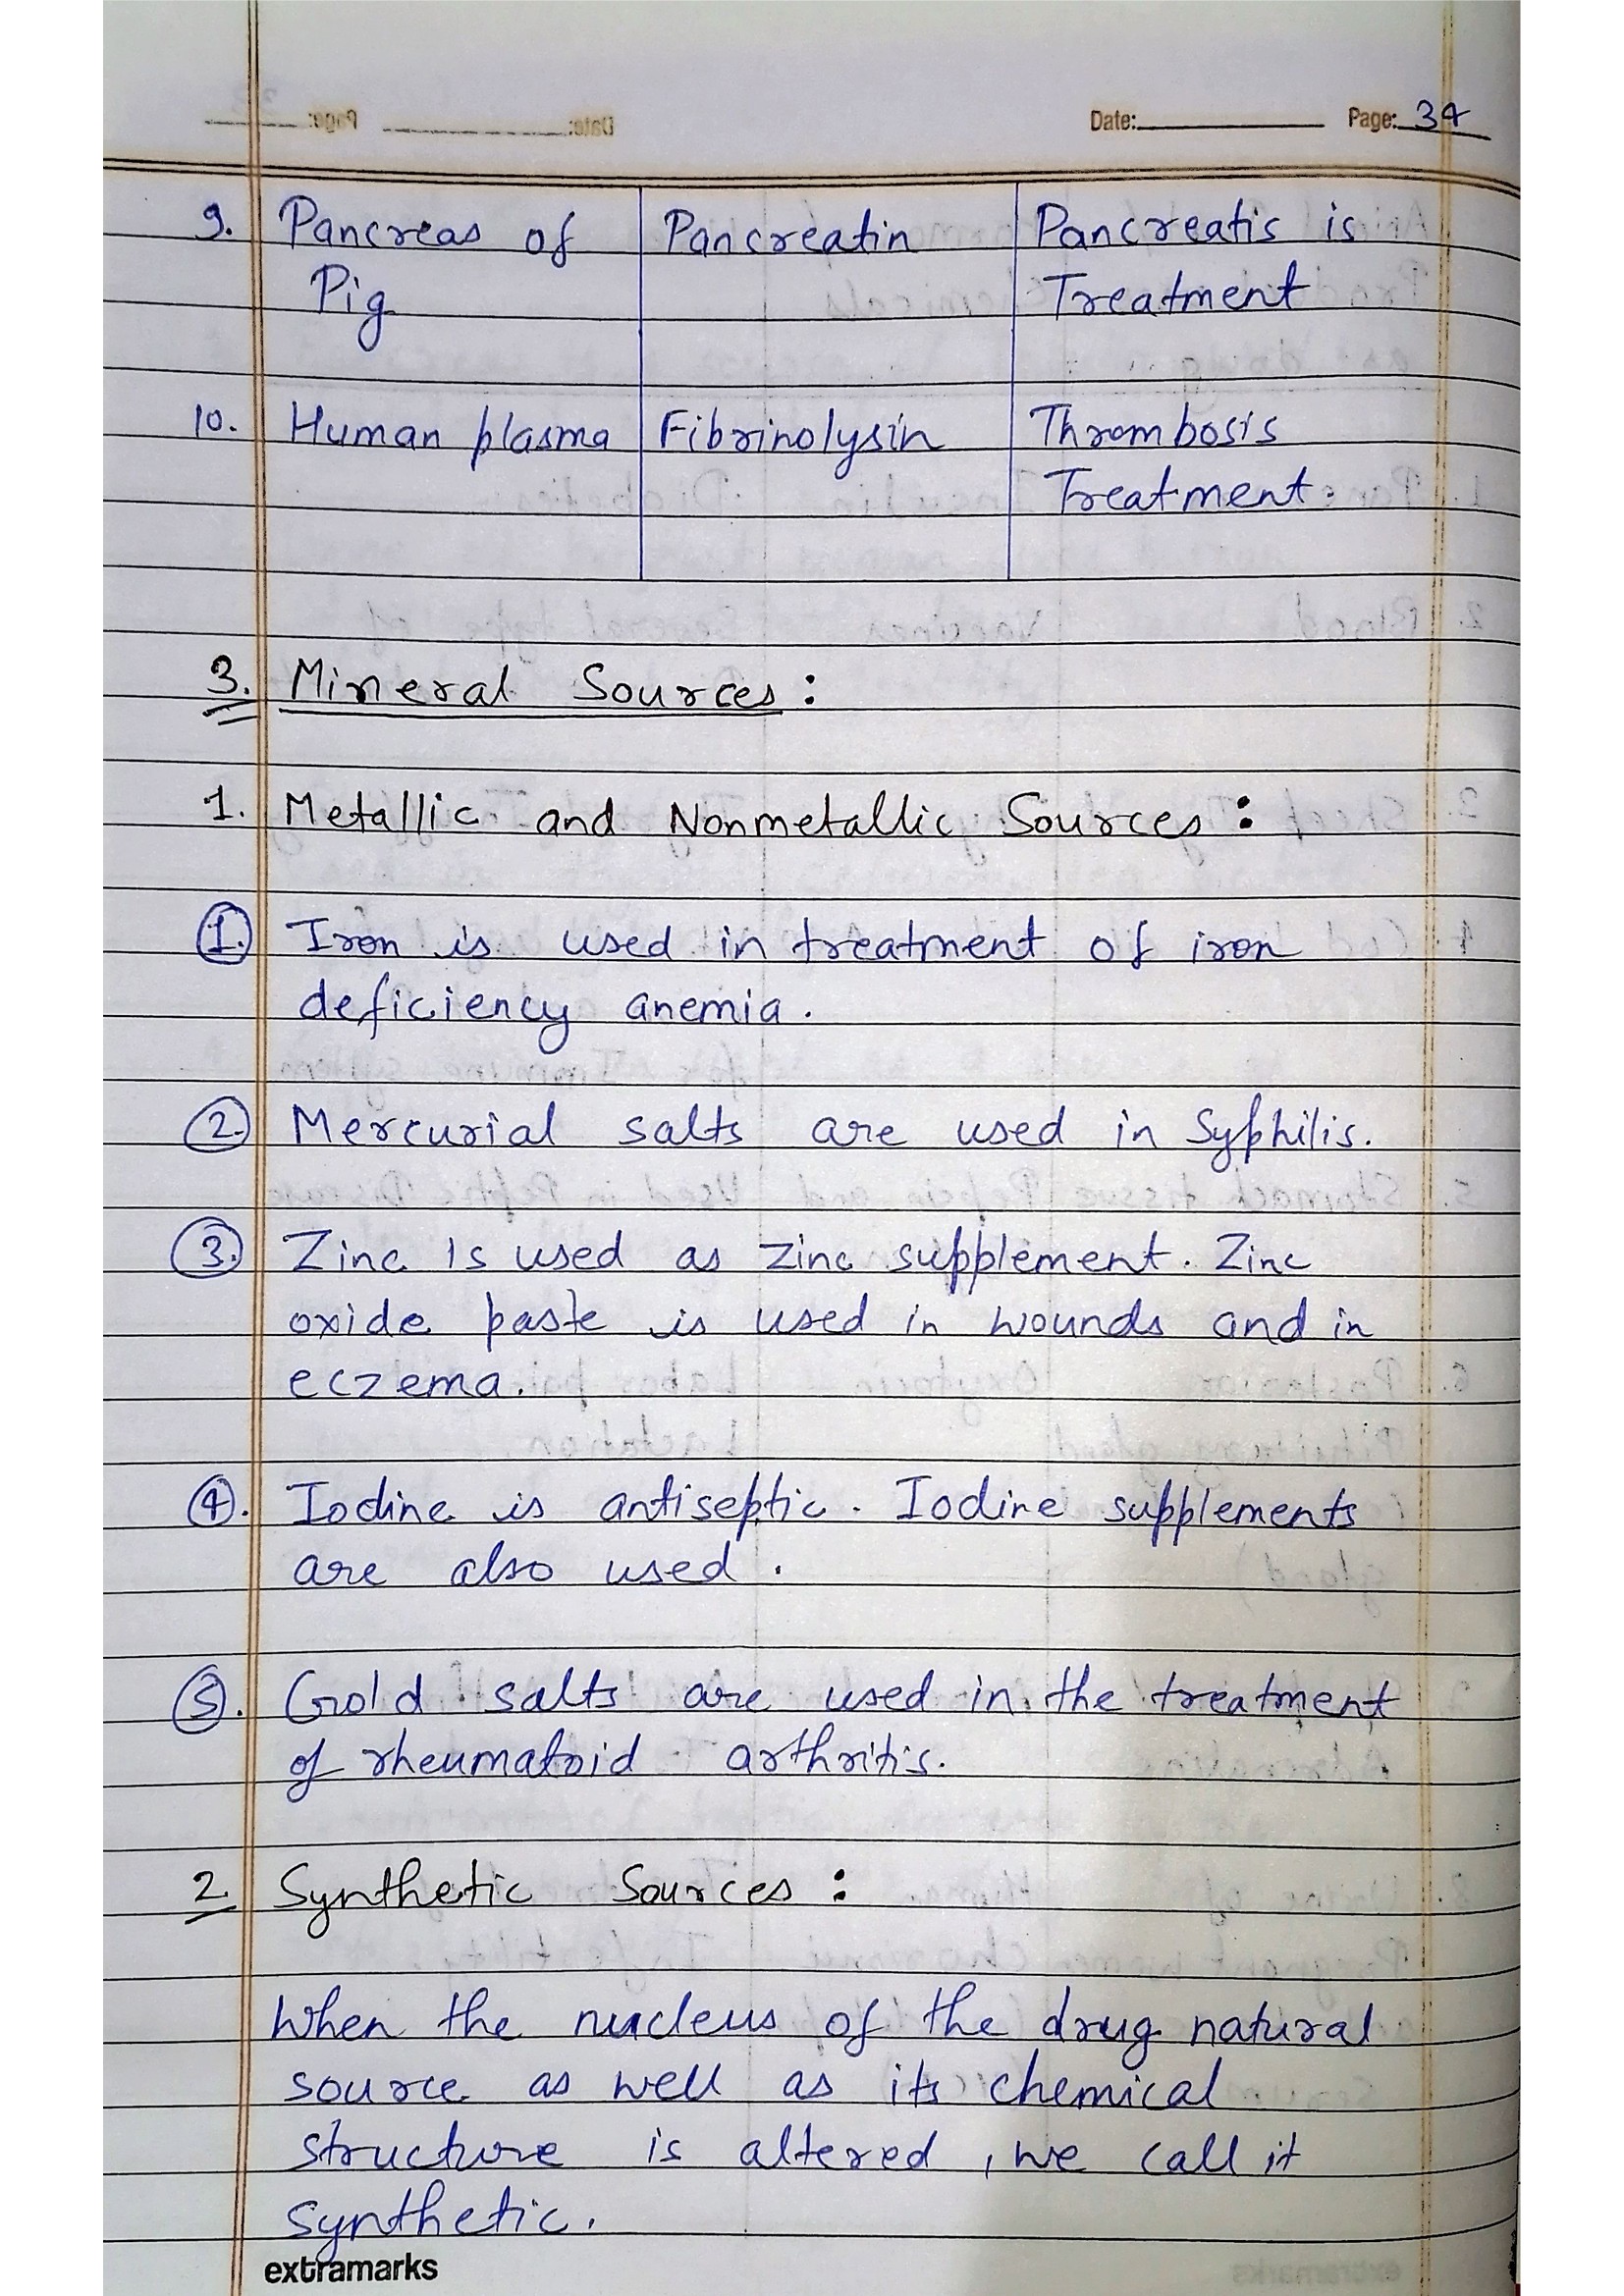 Date: Page: 34
9. Pancreas of Pancreatin Pancreatis is
Pig Treatment
10. Human plasma Fibrinolysin Thrombosis
Treatment
3. Mineral Sources :
1. Metallic and Nonmetallic Sources :
1. Iron is used in treatment of iron
deficiency anemia.
2. Mercurial salts are used in Syphilis.
3. Zinc is used as zinc supplement. Zinc
oxide paste is used in wounds and in
eczema.
4. Iodine is antiseptic. Iodine supplements
are also used.
5. Gold salts are used in the treatment
of rheumatoid arthritis.
2 Synthetic Sources :
When the nucleus of the drug natural
source as well as its chemical
structure is altered, we call it
synthetic.
extramarks